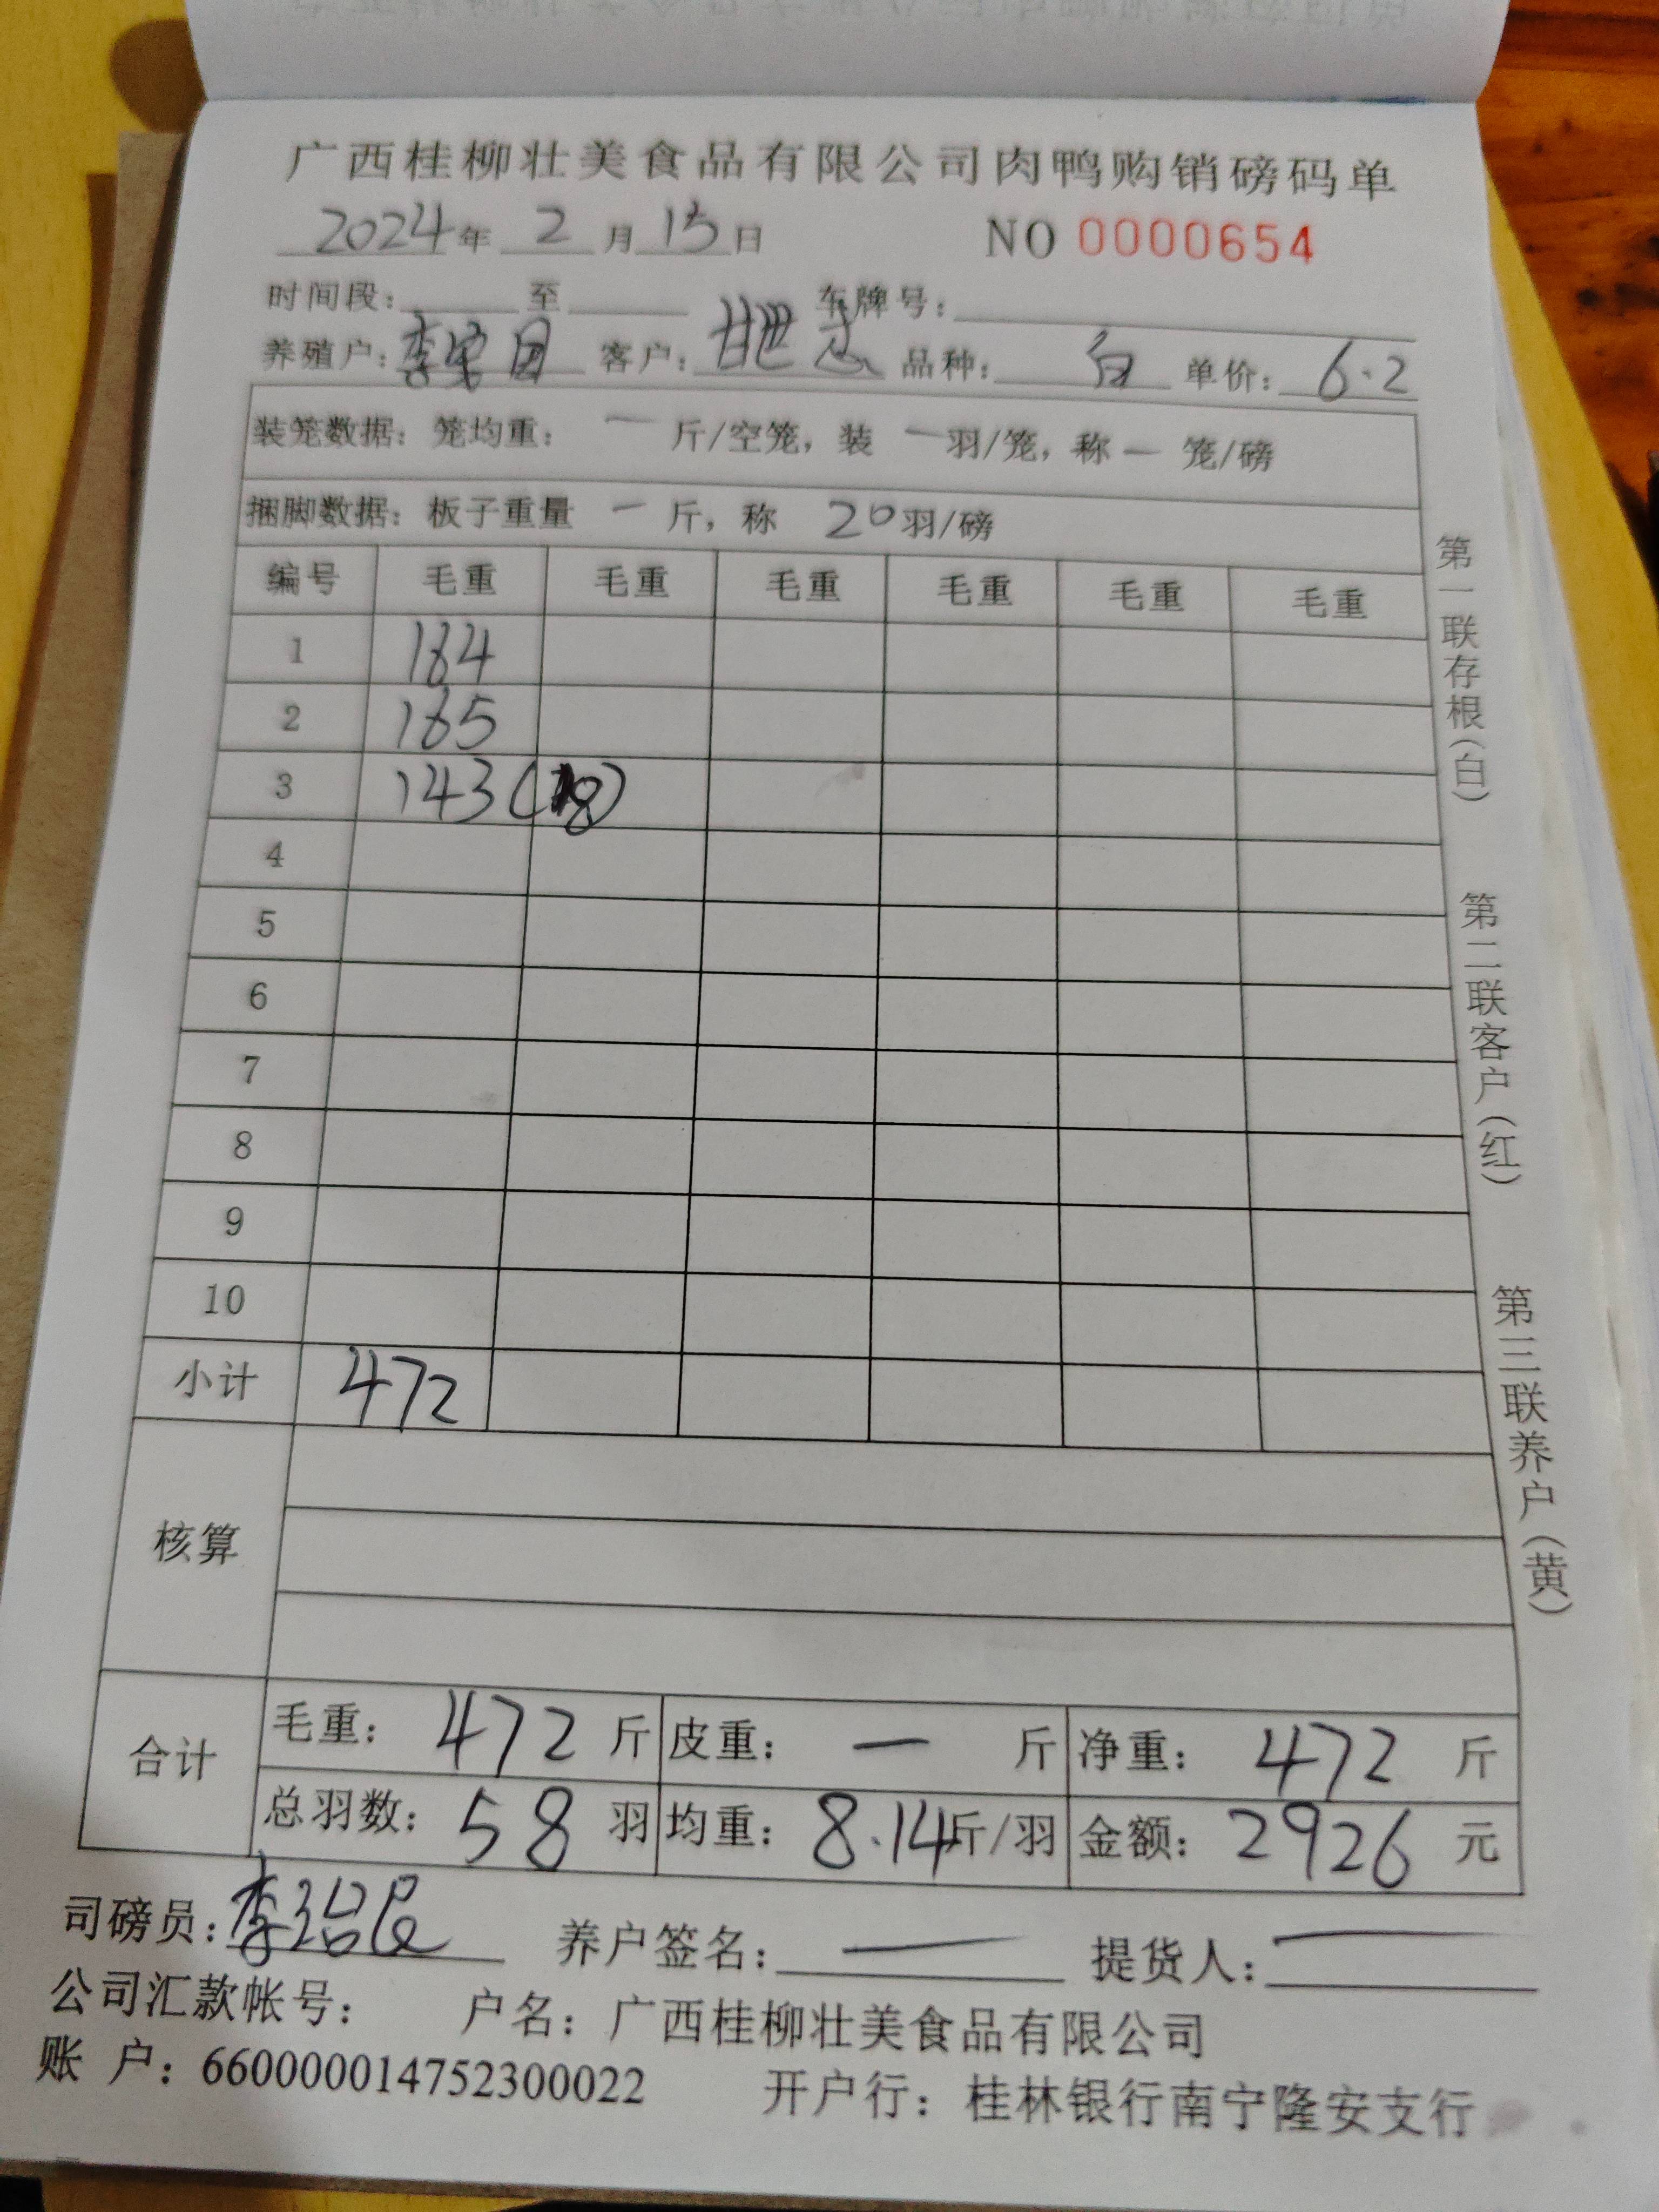 广西桂柳壮美食品有限公司肉鸭购销磅码单
2024年 2 月 15 日 NO 0000654
时间段: 至 车牌号:
养殖户: 李 客户: 品种: 白 单价: 6.2
装笼数据: 笼均重: — 斤/空笼, 装 — 羽/笼, 称 — 笼/磅
捆脚数据: 板子重量 — 斤, 称 20 羽/磅
编号 毛重 毛重 毛重 毛重 毛重 毛重
1 164
2 165
3 143 (18)
4
5
6
7
8
9
10
小计 472
核算
合计
毛重: 472 斤 皮重: — 斤 净重: 472 斤
总羽数: 58 羽 均重: 8.14斤/羽 金额: 2926 元
司磅员: 李治良 养户签名: — 提货人: —
公司汇款帐号: 户名: 广西桂柳壮美食品有限公司
账 户: 660000014752300022 开户行: 桂林银行南宁隆安支行
第一联存根(白)
第二联客户(红)
第三联养户(黄)